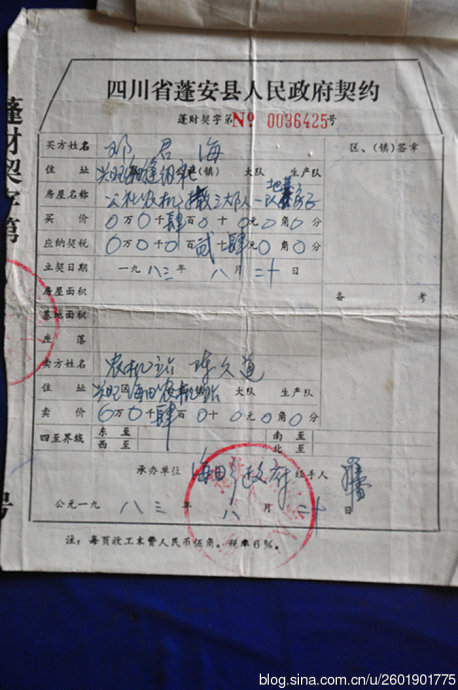 四川省蓬安县人民政府契约
蓬财契字第№ 0036425号
买方姓名 邓君海 区、(镇)签章
住 址 (镇) 大队 生产队
房屋名称 公社农机
买 价 0万0千肆百0十0元0角0分
应纳契税 0万0千0百贰十肆元0角0分
立契日期 一九八三年八月二十日
房屋面积 备 考
基地面积
座 落
卖方姓名 农机站
住 址 大队 生产队
卖 价 0万0千肆百0十0元0角0分
四至界线 东至 南至
西至 北至
承办单位 海田 政府 经手人
公元一九八三年八月二十日
注:每页收工本费人民币伍角,税率6%。
蓬财契字第
号
blog.sina.com.cn/u/2601901775